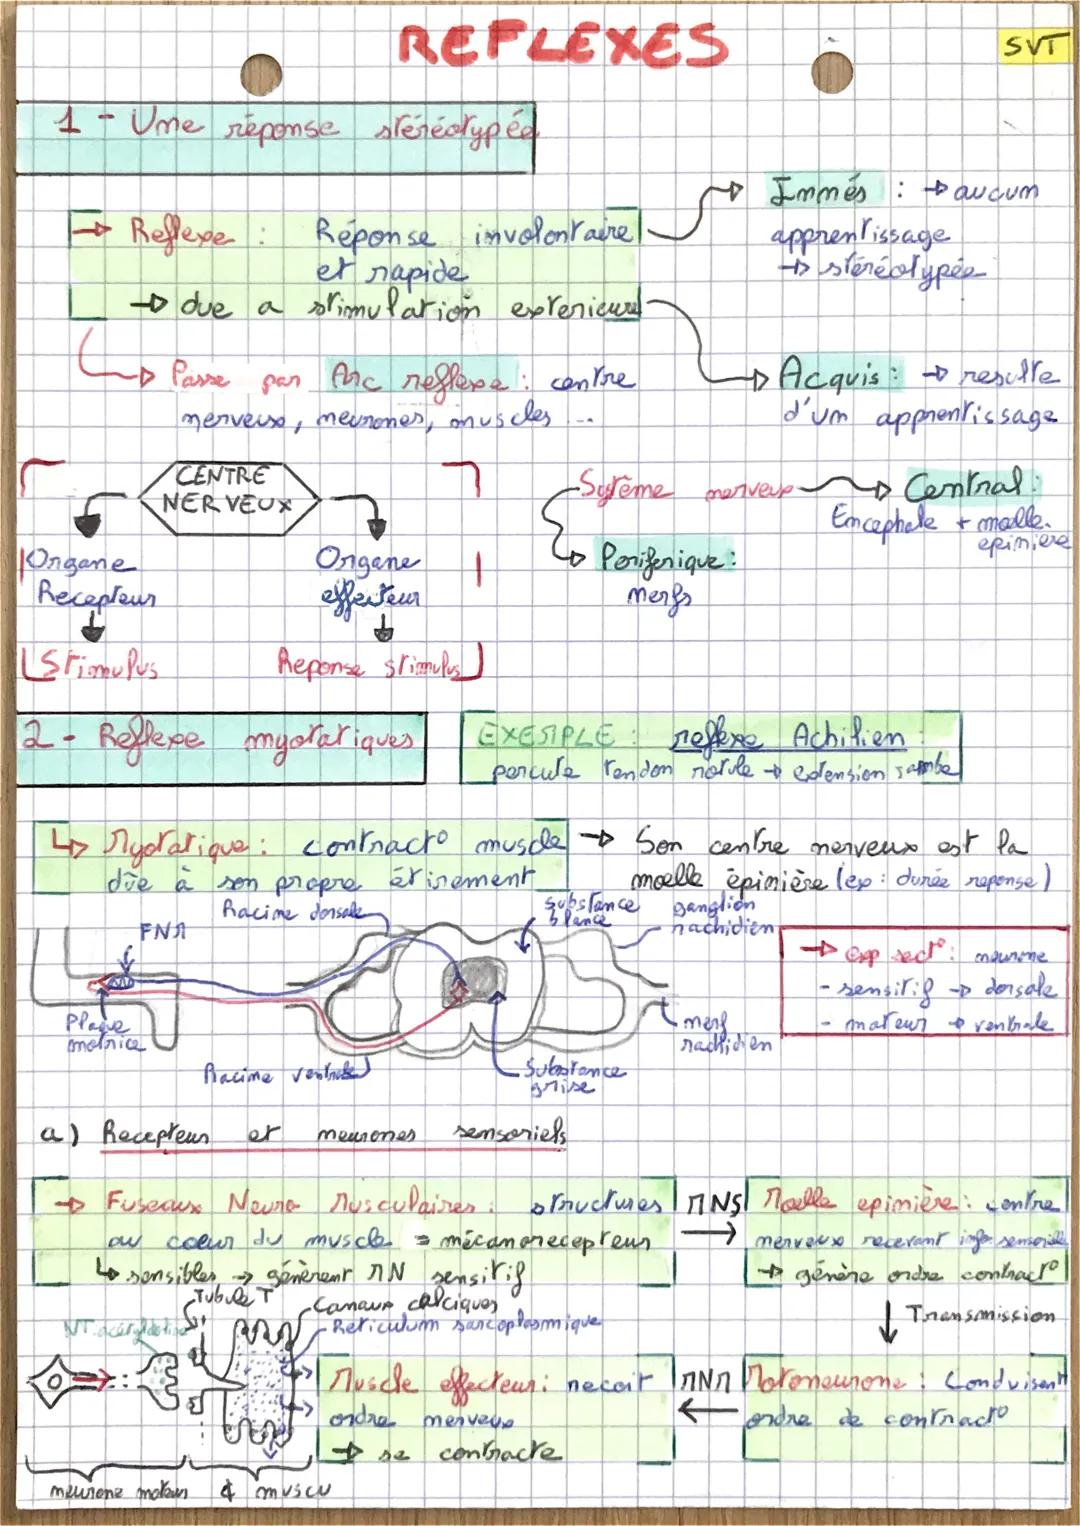 REFLEXES
SVT
1 - Une réponse stéréotypée
→ Reflexe : Réponse involontaire
et rapide
→ due a stimulation exterieure
Immés : → aucum
apprentissage
→ stéréotypée
↳ Passe par Arc reflexe : centre
nerveux, neurones, muscles ...
Acquis : → resulte
d'um apprentissage
CENTRE
NERVEUX
Organe
Recepteur
Stimulus
Organe
effecteur
Reponse stimulus
Système nerveux → Central :
Encephale + moelle
epiniere
→ Periferique :
Nerfs
2 - Reflexe myotatiques
EXEMPLE : reflexe Achilien :
percute tendon rotule → extension jambe
↳ Myotatique : contract° muscle
dûe à son propre étirement
→ Son centre nerveux est la
moelle épinière (exp : durée reponse)
Racine dorsale
substance
blance
ganglion
rachidien
FNM
Plaque
motrice
Racine ventrale
Substance
grise
nerf
rachidien
→ Exp sect° : neurone
- sensitif → dorsale
- moteur → ventrale
a) Recepteur et neurones sensoriels
→ Fuseaux Neuro Musculaires : structures
au coeur du muscle = mécanorecepteur
↳ sensibles → génèrent MN sensitif
MNS
→
Moelle epinière : Centre
nerveux recevant info sensorielle
→ génère ordre contract°
↓ Transmission
Motoneurone : Conduisent
ordre de contract°
MNM
←
Muscle effecteur : recoit
ordre nerveux
→ se contracte
Tubule T
Canaux calciques
Reticulum sarcoplasmique
NT acétylcholine
neurone moteur
¢ muscu